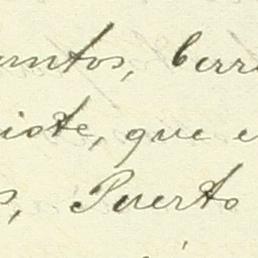 untos, Cerr
iste, que e
s, Puerto